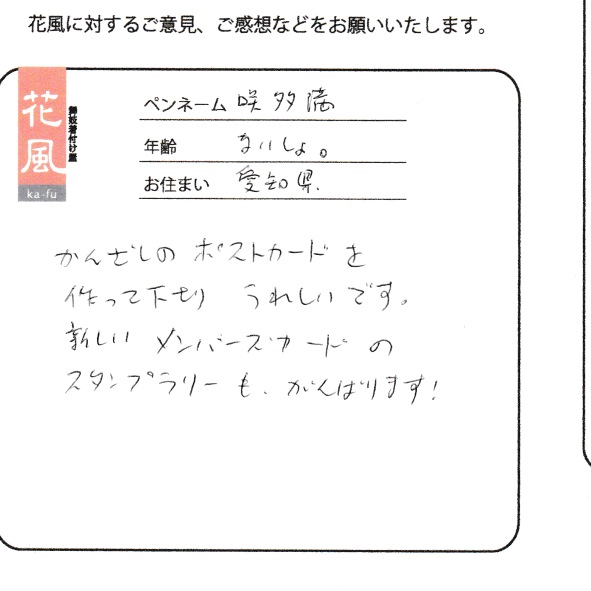 花風に対するご意見、ご感想などをお願いいたします。
花風
舞妓着付け屋
ka-fu
ペンネーム 咲多満
年齢 ないしょ。
お住まい 愛知県.
かんざしの ポストカードを
作って下さり うれしいです。
新しい メンバーズカードの
スタンプラリーも、がんばります!